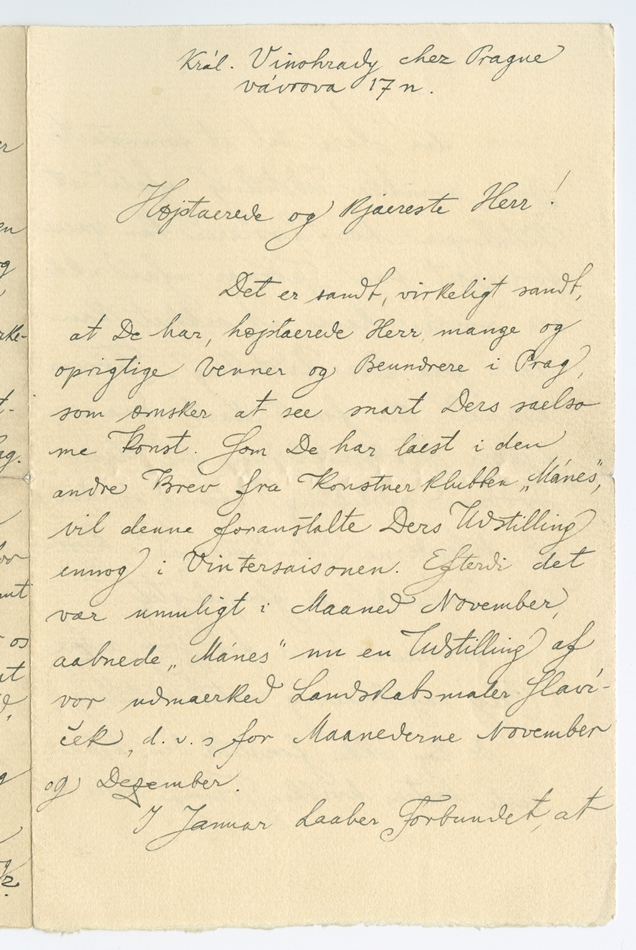 Král. Vinohrady chez Prague
vávrova 17 n.
Højtaerede og kjaereste Herr!
Det er sandt, virkeligt sandt,
at De har, højtaerede Herr, mange og
oprigtige Venner og Beundrere i Prag,
som ønsker at see snart Ders saelso
me Konst. Som De har laest i den
andre Brev fra Konstnerklubben „Mánes",
vil denne foranstalte Ders Udstilling
ennog i Vintersaisonen. Efterdi det
var umuligt i Maaned November,
aabnede „Mánes" nu en Udstilling af
vor udmaerked Landskabsmaler Slaví-
ček, d. v. s for Maanederne November
og Dezember.
I Januar laaber Forbundet, at